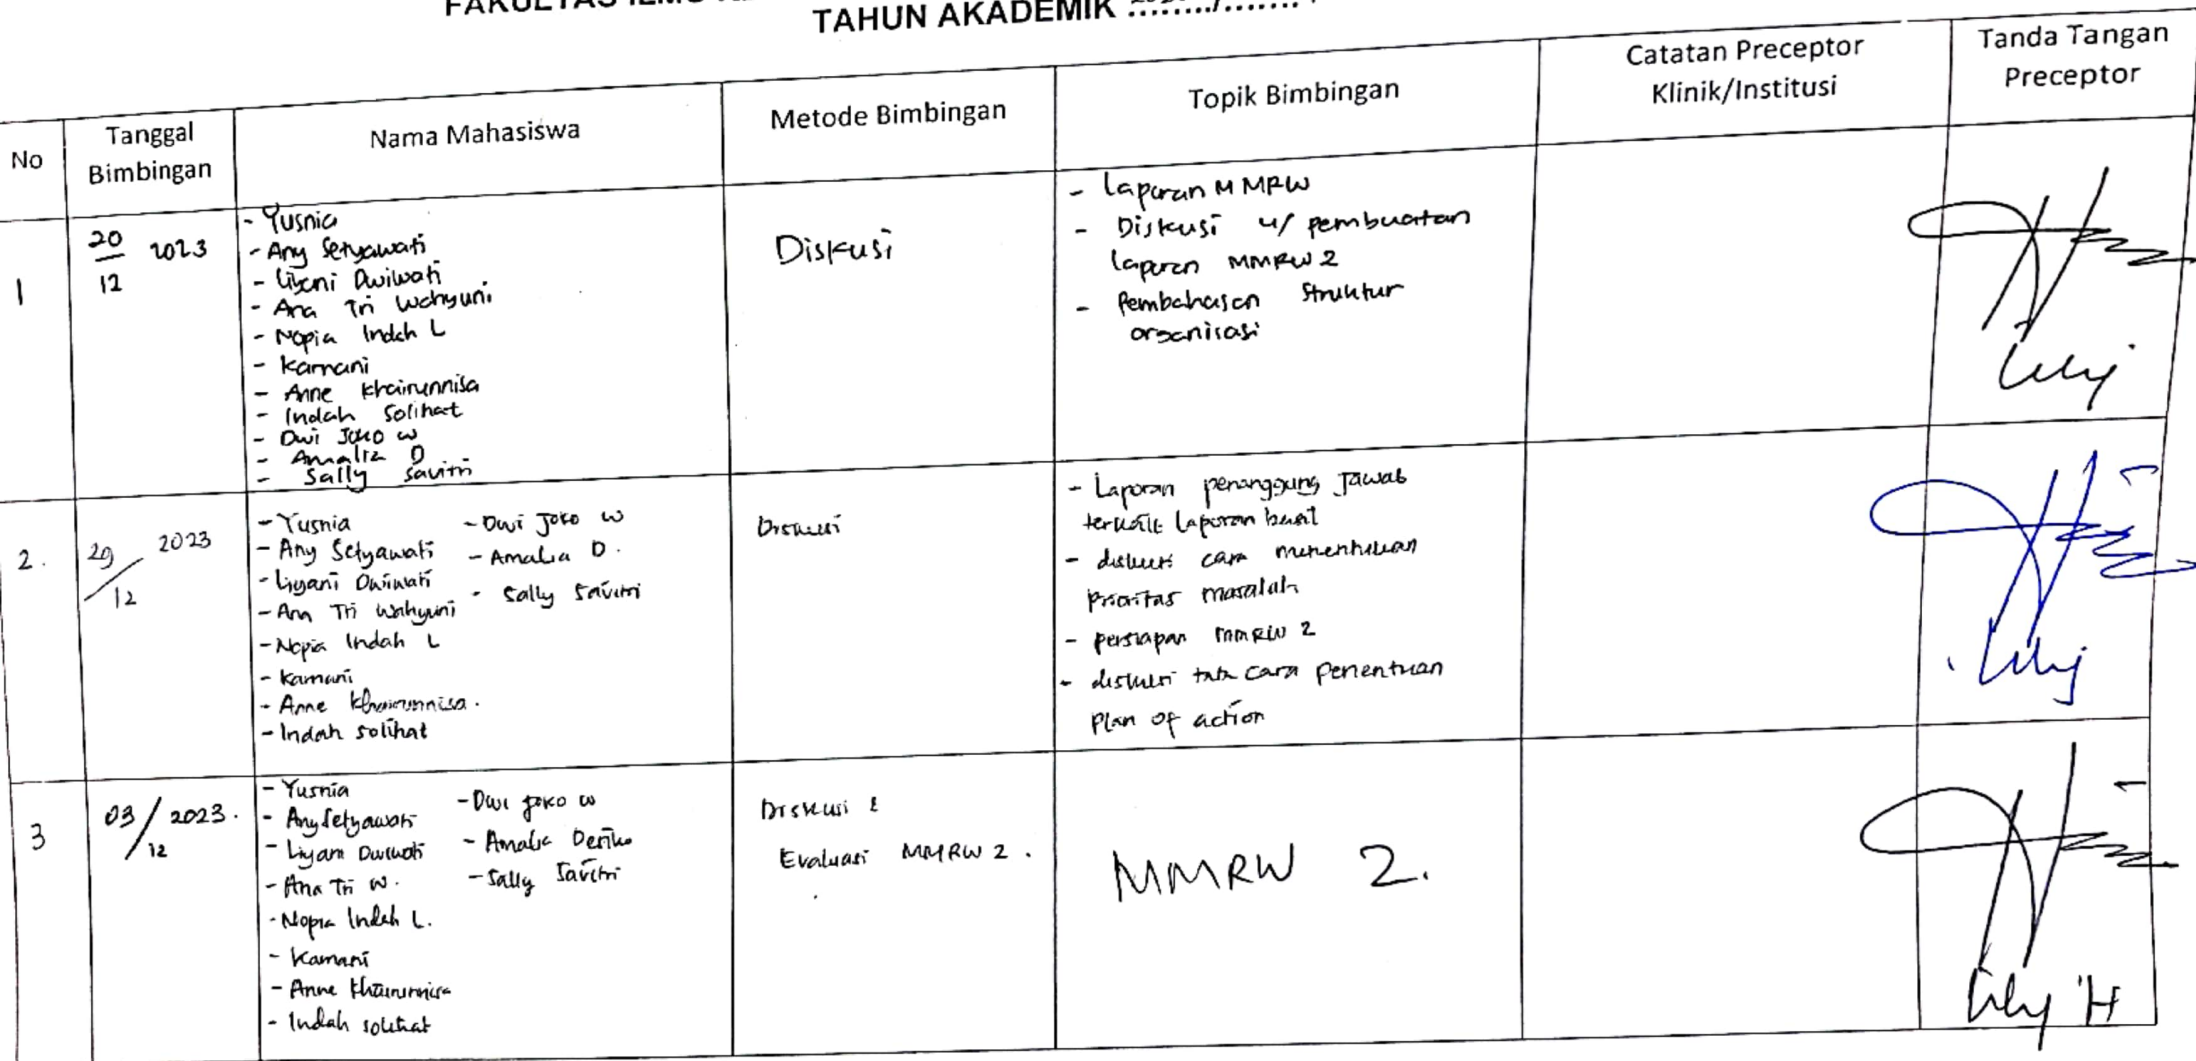 FAKULTAS ILMU
TAHUN AKADEMIK ......../........
No
Tanggal Bimbingan
Nama Mahasiswa
Metode Bimbingan
Topik Bimbingan
Catatan Preceptor Klinik/Institusi
Tanda Tangan Preceptor
1
20/12 2023
- Yusnia
- Any Setyawati
- Liyani Dwiwati
- Ana Tri Wahyuni
- Nopia Indah L
- Kamani
- Anne Khairunnisa
- Indah Solihat
- Dwi Joko W
- Amalia D
- Sally Savitri
Diskusi
- Laporan MMRW
- Diskusi u/ pembuatan
laporan MMRW 2
- Pembahasan Struktur
organisasi
Lily
2.
29/12 2023
- Yusnia
- Any Setyawati
- Liyani Dwiwati
- Ana Tri Wahyuni
- Nopia Indah L
- Kamani
- Anne Khairunnisa.
- Indah Solihat
- Dwi Joko W
- Amalia D.
- Sally Savitri
Diskusi
- Laporan penanggung Jawab
terkait laporan
- diskusi cara menentukan
Prioritas masalah
- persiapan MMRW 2
- diskusi tata cara penentuan
Plan of action
Lily
3
03/12 2023.
- Yusnia
- Any Setyawati
- Liyani Dwiwati
- Ana Tri W.
- Nopia Indah L.
- Kamani
- Anne Khairunnisa
- Indah Solihat
- Dwi Joko W
- Amalia
- Sally Savitri
Diskusi &
Evaluasi MMRW 2.
MMRW 2.
Lily H